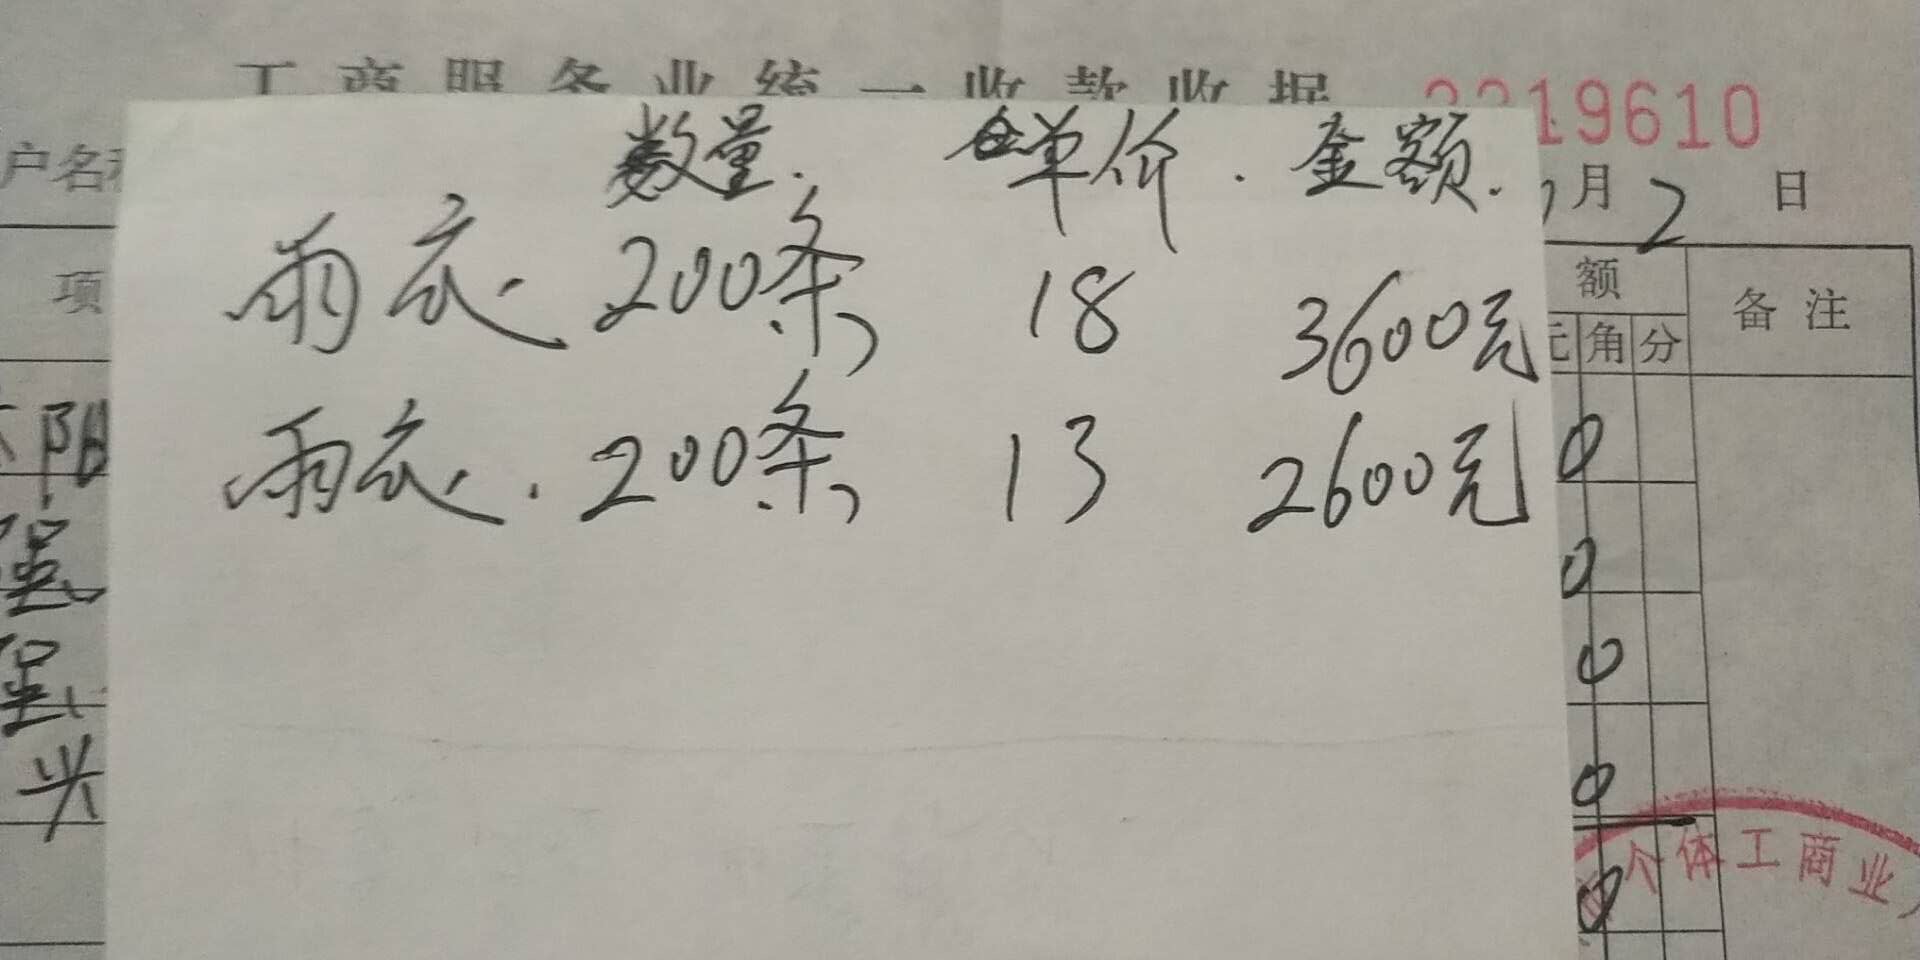 工商服务业统一收款收据
19610
户名
月 2 日
数量. 单价. 金额.
雨衣. 200条 18 3600元
雨衣. 200条 13 2600元
项
额
备注
元 角 分
阳
0
0
0
兴
0
0
个体工商业